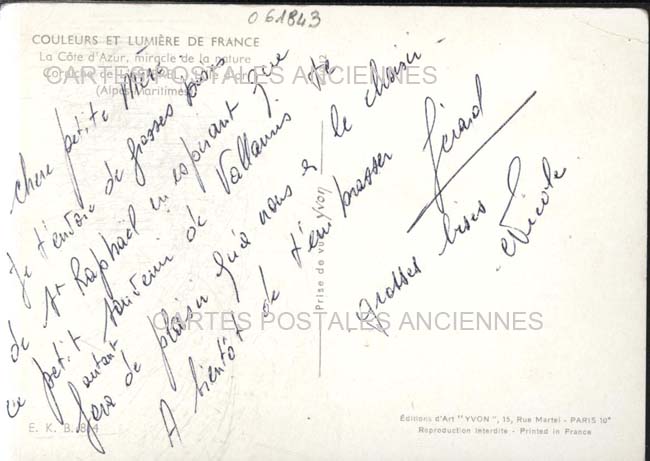 061843
COULEURS ET LUMIÈRE DE FRANCE
La Côte d'Azur, miracle de la nature
Corniche de
(Alpes-Maritimes)
CARTES POSTALES ANCIENNES
Chère petite Mère
Je t'envoie de grosses bises
de St Raphaël en espérant que
ce petit souvenir de Vallauris te
fera autant de plaisir qu'à nous à le choisir
A bientôt de t'embrasser
Gérard
grosses bises
Nicole
Prise de vue YVON
CARTES POSTALES ANCIENNES
E. K. B. 84
Éditions d'Art "YVON", 15, Rue Martel - PARIS 10e
Reproduction Interdite - Printed in France